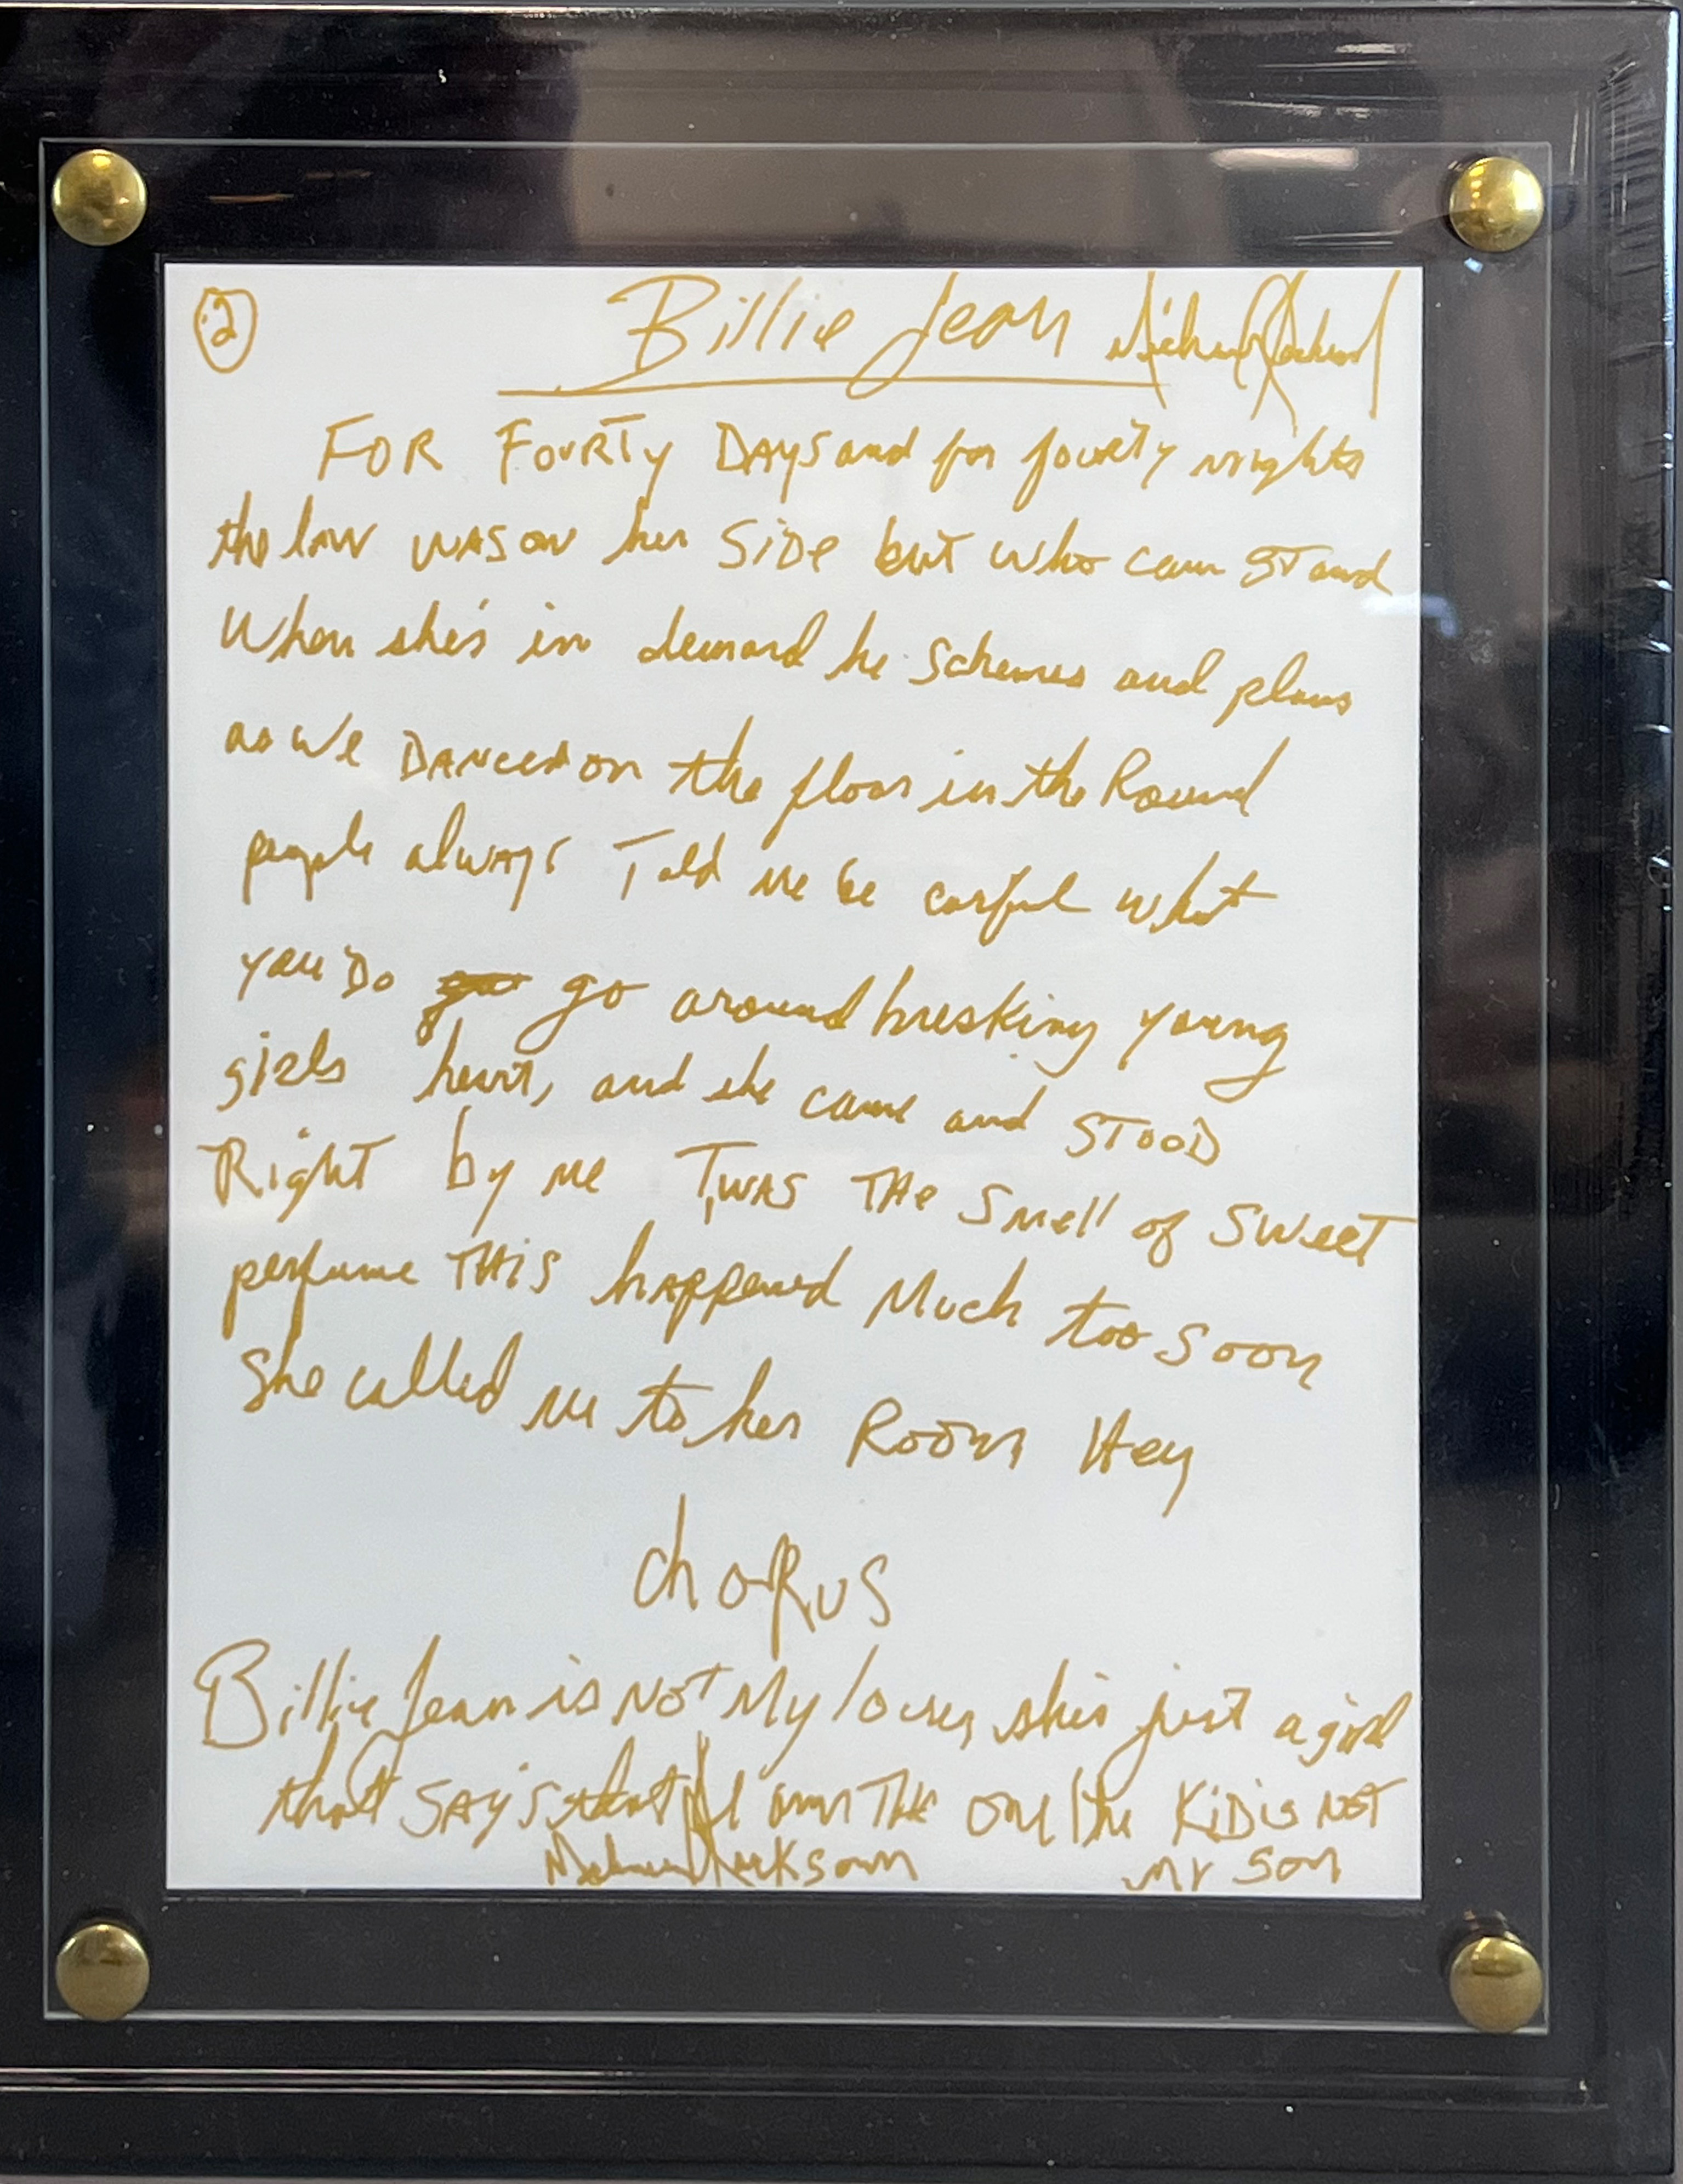 2
Billie Jean Michael Jackson
FOR FOURTY DAYS and for fourty nights
the law WAS on her SiDe but who can STand
When she's in demand he Schemes and plans
as We DANCED on the floor in the Round
people always Told me be carful what
you Do go around breaking young
girls heart, and she came and STOOD
Right by me T,WAS THe Smell of SWeeT
perfume THiS happened Much too soon
She called me to her Room Hey
chORUS
Billie Jean is NOT My lover, she's just a girl
that SAY'S that I am THE One the KiD is NOT
my Son
Michael Jackson